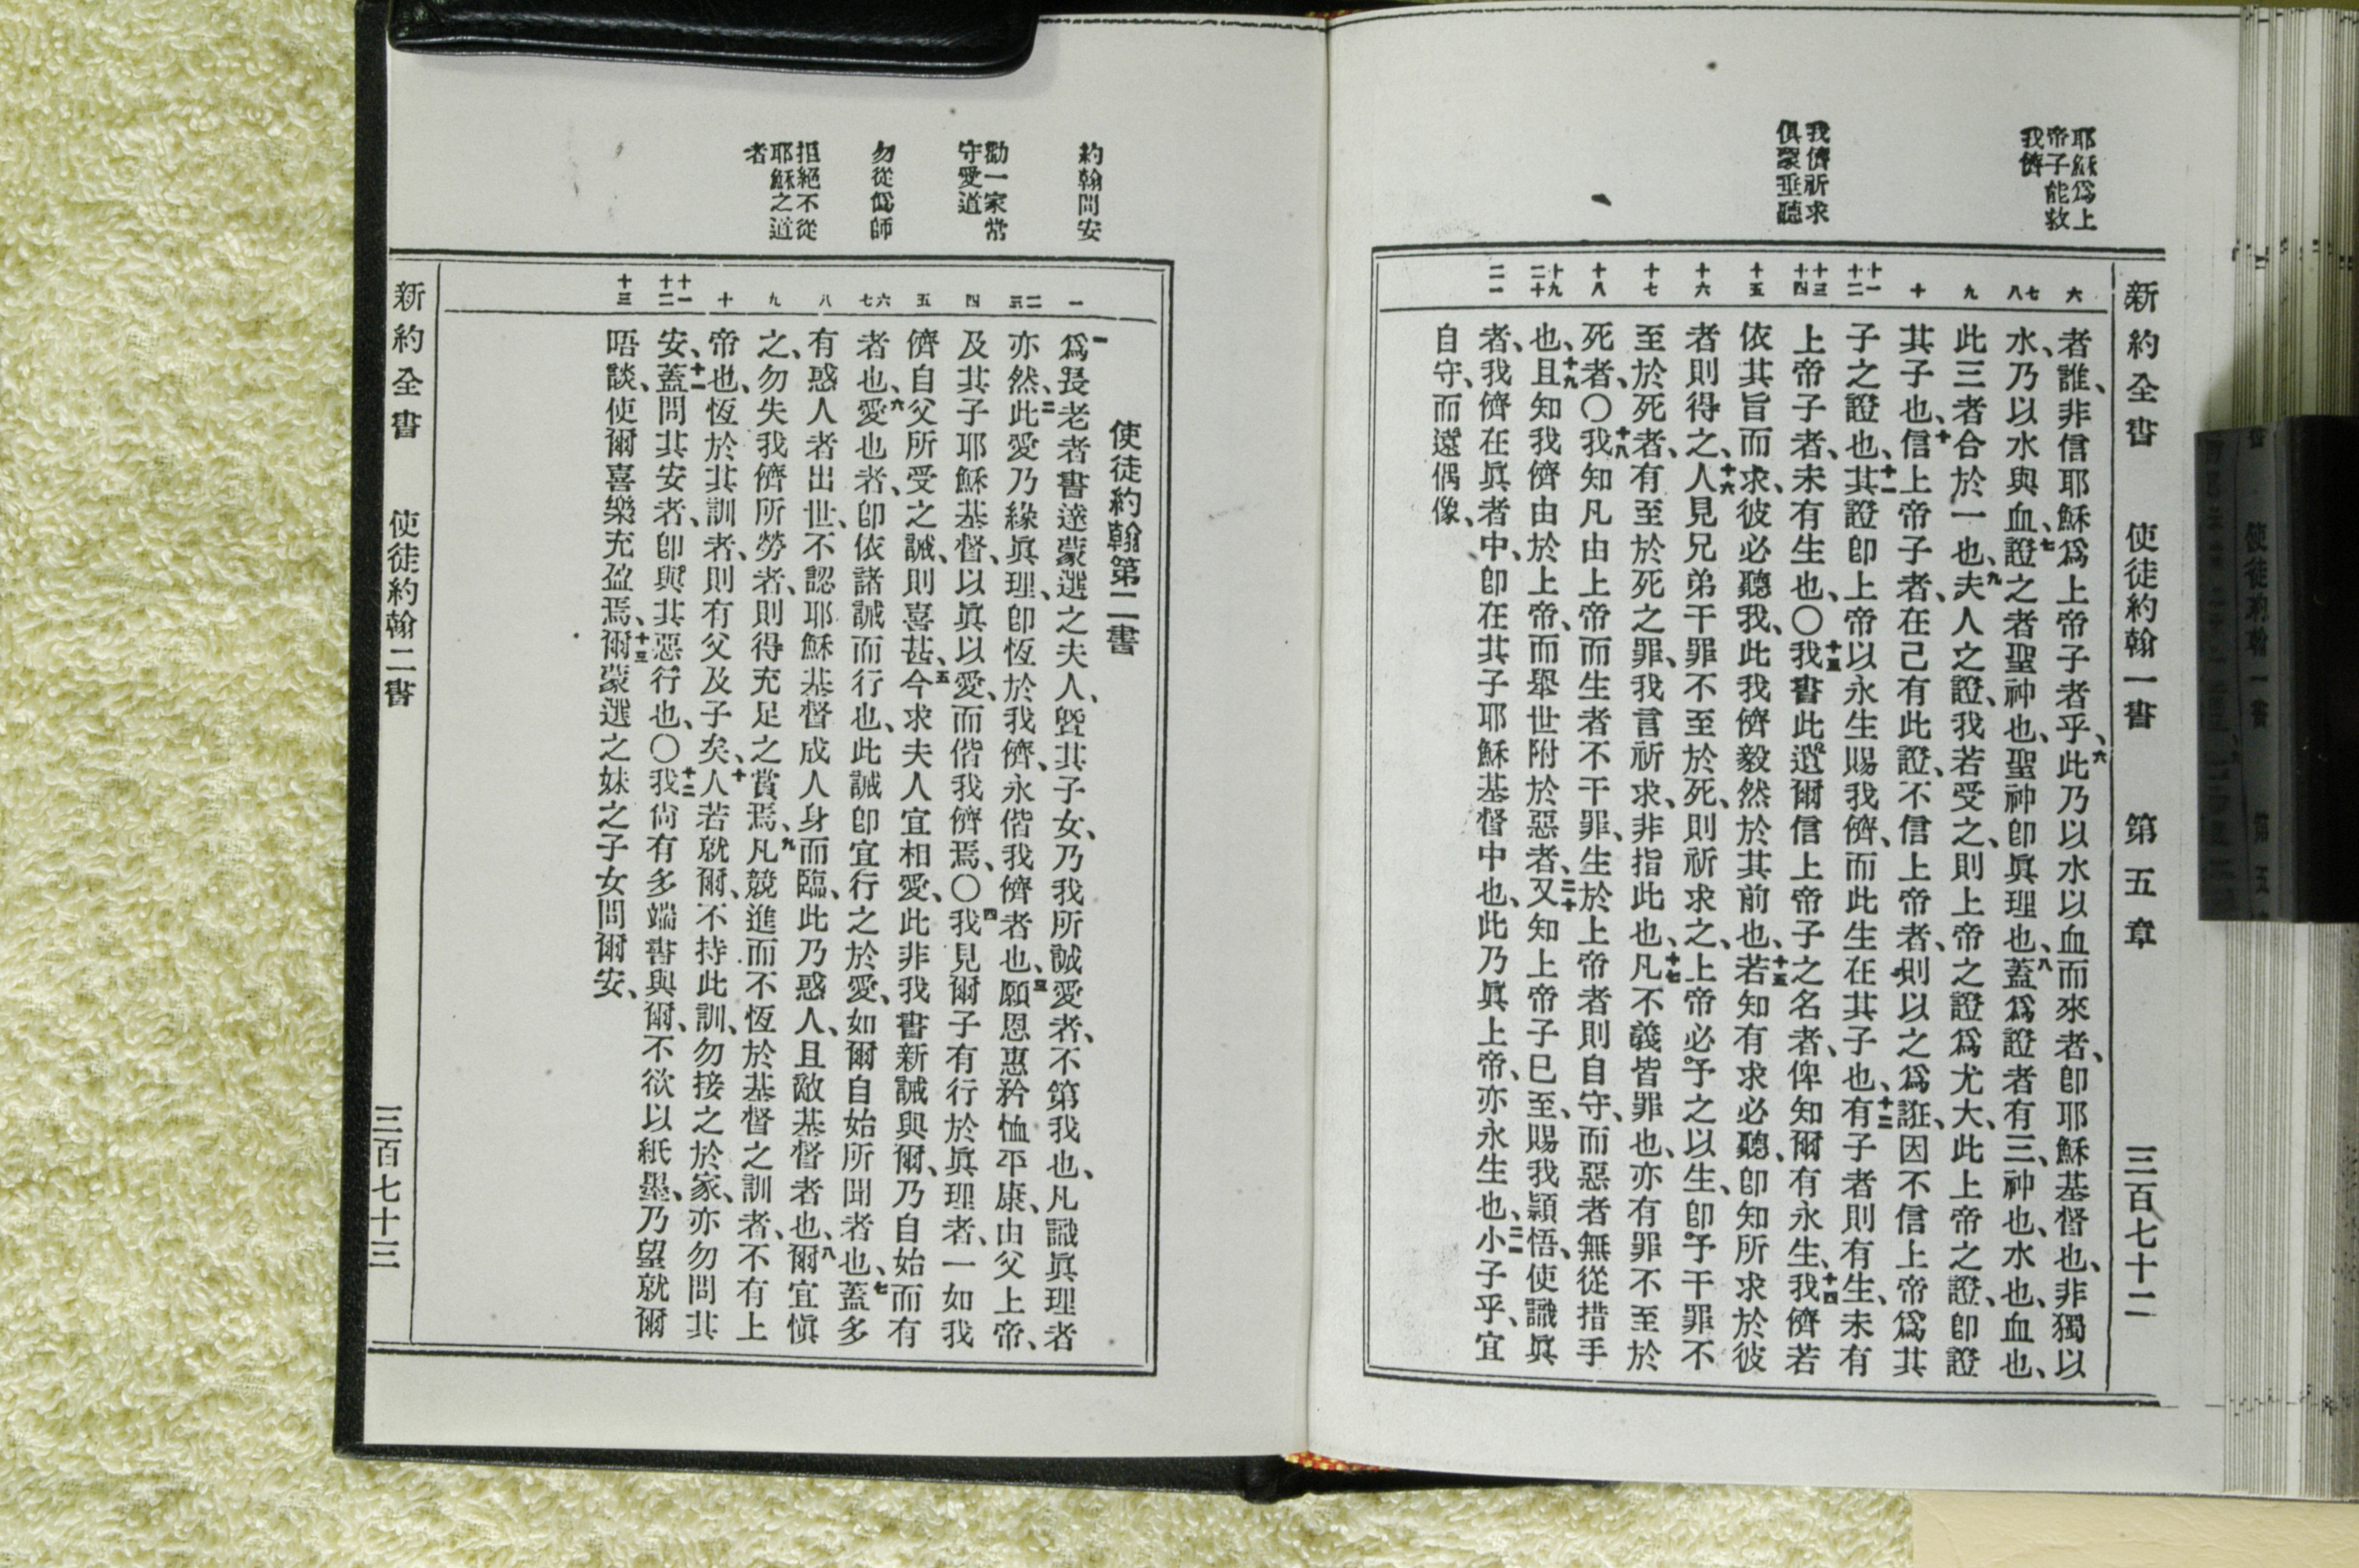 新約全書 使徒約翰一書 第五章 三百七十二
耶穌爲上
帝子能救
我儕
我儕祈求
俱蒙垂聽
六
七
八
九
十
十一
十二
十三
十四
十五
十六
十七
十八
十九
二十
二一
者誰、非信耶穌爲上帝子者乎、六此乃以水以血而來者、卽耶穌基督也、非獨以
水、乃以水與血、七證之者聖神也、聖神卽眞理也、八蓋爲證者有三、神也、水也、血也、
此三者合於一也、九夫人之證、我若受之、則上帝之證爲尤大、此上帝之證、卽證
其子也、十信上帝子者、在己有此證、不信上帝者、則以之爲誑、因不信上帝爲其
子之證也、十一其證卽上帝以永生賜我儕、而此生在其子也、十二有子者則有生、未有
上帝子者、未有生也、〇十三我書此遺爾信上帝子之名者、俾知爾有永生、十四我儕若
依其旨而求、彼必聽我、此我儕毅然於其前也、十五若知有求必聽、卽知所求於彼
者則得之、十六人見兄弟干罪不至於死、則祈求之、上帝必予之以生、卽予干罪不
至於死者、有至於死之罪、我言祈求、非指此也、十七凡不義皆罪也、亦有罪不至於
死者、〇十八我知凡由上帝而生者不干罪、生於上帝者則自守、而惡者無從措手
也、十九且知我儕由於上帝、而舉世附於惡者、二十又知上帝子已至、賜我穎悟、使識眞
者、我儕在眞者中、卽在其子耶穌基督中也、此乃眞上帝、亦永生也、二一小子乎、宜
自守、而遠偶像、
約翰問安
勸一家常
守愛道
勿從僞師
拒絕不從
耶穌之道
者
一
二
三
四
五
六
七
八
九
十
十一
十二
十三
使徒約翰第二書
一爲長老者書達蒙選之夫人、曁其子女、乃我所誠愛者、不第我也、凡識眞理者
亦然、二此愛乃緣眞理、卽恆於我儕、永偕我儕者也、三願恩惠矜恤平康、由父上帝、
及其子耶穌基督、以眞以愛、而偕我儕焉、〇四我見爾子有行於眞理者、一如我
儕自父所受之誡、則喜甚、五今求夫人宜相愛、此非我書新誡與爾、乃自始而有
者也、六愛也者、卽依諸誡而行也、此誡卽宜行之於愛、如爾自始所聞者也、七蓋多
有惑人者出世、不認耶穌基督成人身而臨、此乃惑人、且敵基督者也、八爾宜愼
之、勿失我儕所勞者、則得充足之賞焉、九凡競進而不恆於基督之訓者、不有上
帝也、恆於其訓者、則有父及子矣、十人若就爾、不持此訓、勿接之於家、亦勿問其
安、十一蓋問其安者、卽與其惡行也、〇十二我尙有多端書與爾、不欲以紙墨、乃望就爾
晤談、使爾喜樂充盈焉、十三爾蒙選之妹之子女問爾安、
新約全書 使徒約翰二書 三百七十三